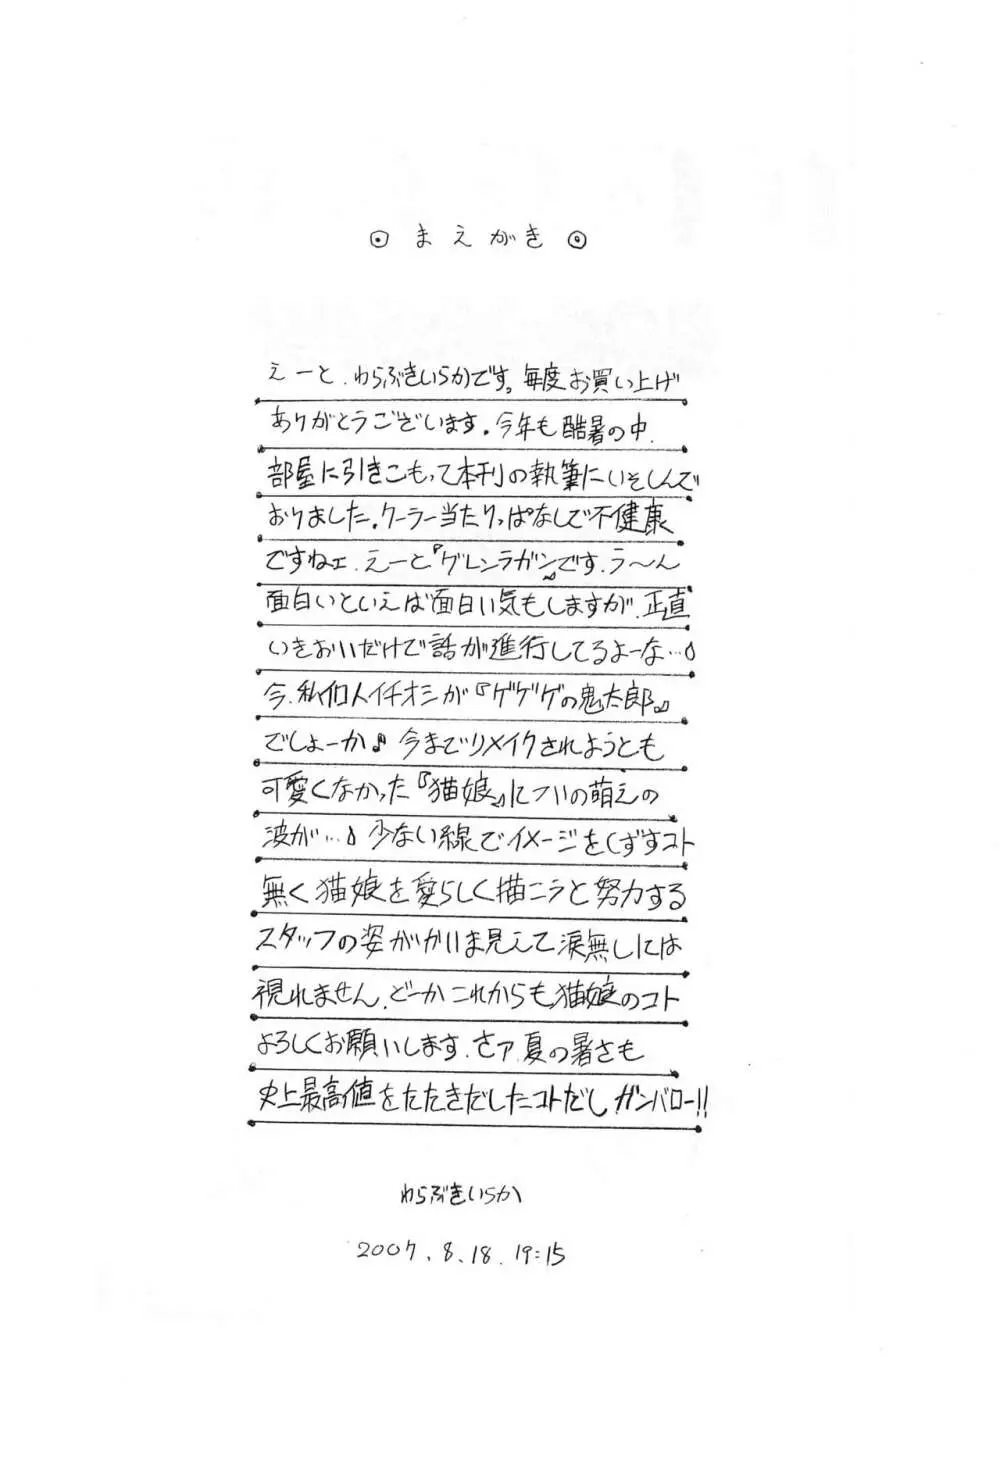 ⊙ まえがき ◎
えーと、わらぶきいらかです。毎度お買い上げ
ありがとうございます。今年も酷暑の中、
部屋に引きこもって本刊の執筆にいそしんで
おりました。クーラー当たりっぱなしで不健康
ですねェ、えーと『グレンラガン』です、う〜ん
面白いといえば面白い気もしますが、正直
いきおいだけで話が進行してるよーな…
今、私個人イチオシが『ゲゲゲの鬼太郎』
でしょーか♪ 今までリメイクされようとも
可愛くなかった『猫娘』についの萌えの
波が… 少ない線でイメージをくずすコト
無く猫娘を愛らしく描こうと努力する
スタッフの姿がかいま見えて涙無しには
視れません、どーかこれからも猫娘のコト
よろしくお願いします、さァ、夏の暑さも
史上最高値をたたきだしたコトだし、ガンバロー!!
わらぶきいらか
2007.8.18.19:15